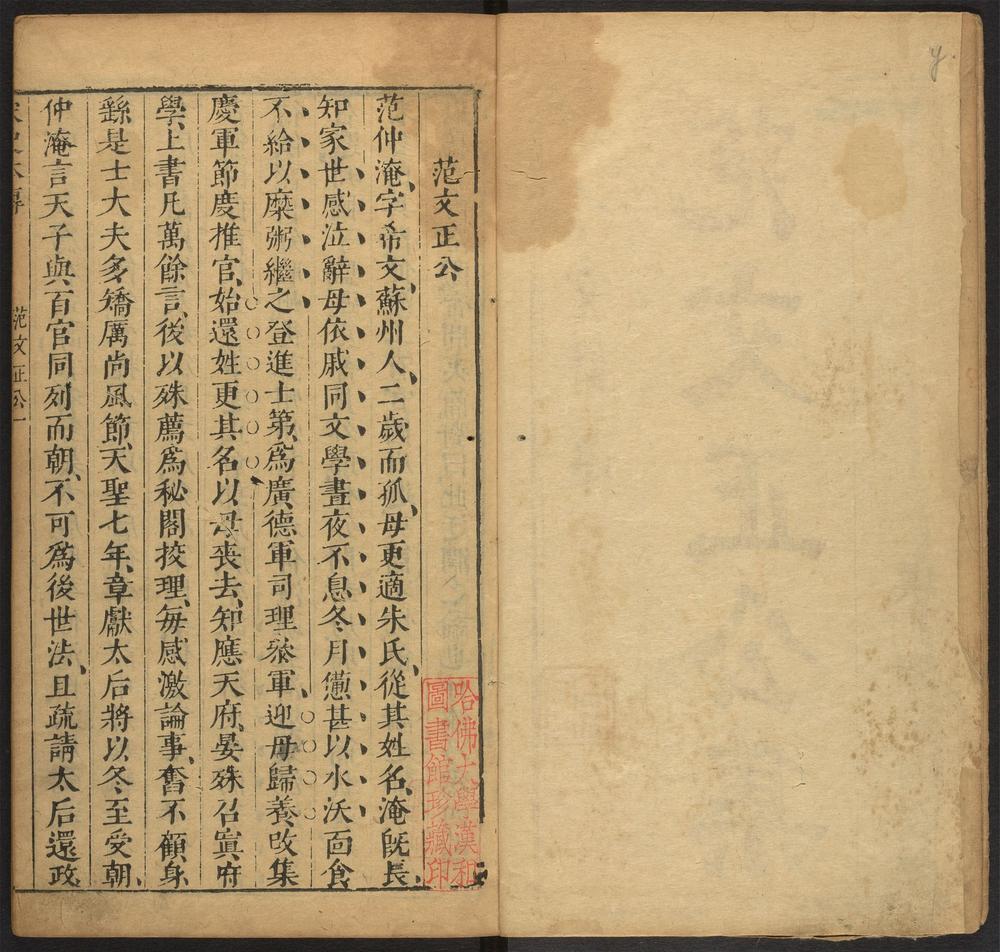 范文正公
范仲淹字希文蘇州人二歲而孤母更適朱氏從其姓名淹旣長
知家世感泣辭母依戚同文學晝夜不息冬月憊甚以水沃面食
不給以糜粥繼之登進士第爲廣德軍司理叅軍迎母歸養攺集
慶軍節度推官始還姓更其名以母丧去知應天府晏殊召寘府
學上書凡萬餘言後以殊薦爲秘閣挍理每感激論事奮不顧身
繇是士大夫多矯厲尚風節天聖七年章獻太后將以冬至受朝
仲淹言天子與百官同列而朝不可爲後世法且疏請太后還政
宋史本傳
范文正公
一
哈佛大學漢和
圖書館珍藏印
y.